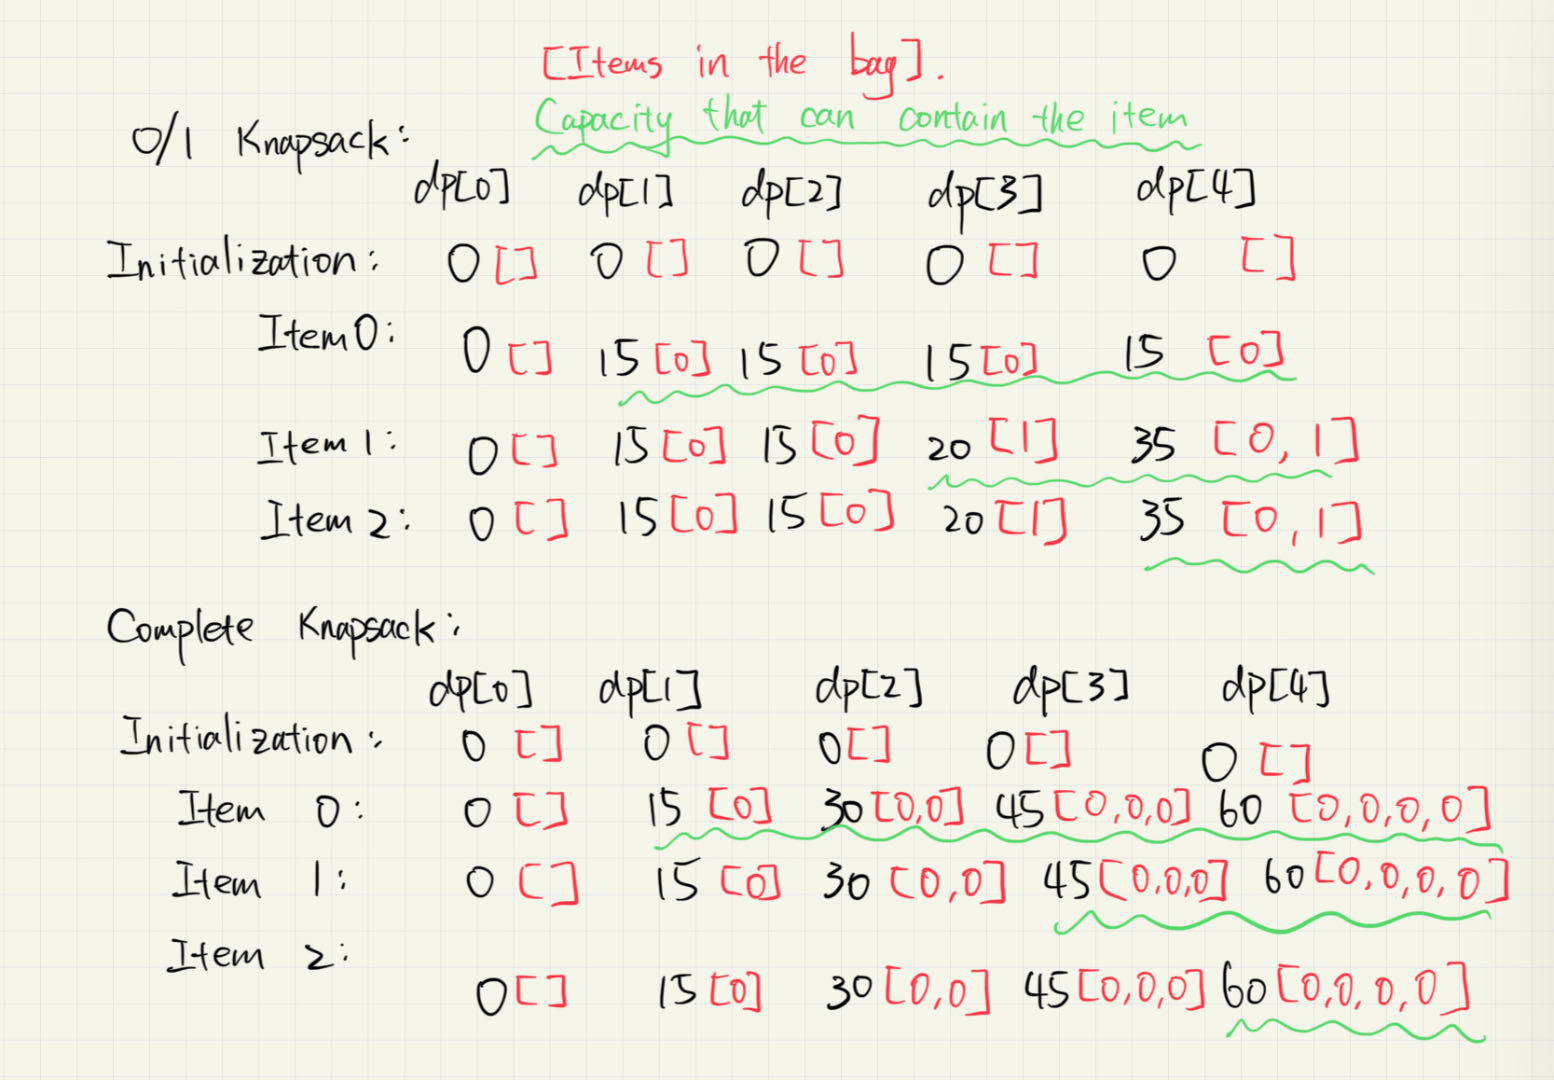 [Items in the bag].
Capacity that can contain the item
0/1 Knapsack:
dp[0] dp[1] dp[2] dp[3] dp[4]
Initialization: 0 [] 0 [] 0 [] 0 [] 0 []
Item0: 0 [] 15 [0] 15 [0] 15 [0] 15 [0]
Item 1: 0 [] 15 [0] 15 [0] 20 [1] 35 [0, 1]
Item 2: 0 [] 15 [0] 15 [0] 20 [1] 35 [0, 1]
Complete Knapsack:
dp[0] dp[1] dp[2] dp[3] dp[4]
Initialization: 0 [] 0 [] 0 [] 0 [] 0 []
Item 0: 0 [] 15 [0] 30 [0,0] 45 [0,0,0] 60 [0,0,0,0]
Item 1: 0 [] 15 [0] 30 [0,0] 45 [0,0,0] 60 [0,0,0,0]
Item 2: 0 [] 15 [0] 30 [0,0] 45 [0,0,0] 60 [0,0,0,0]